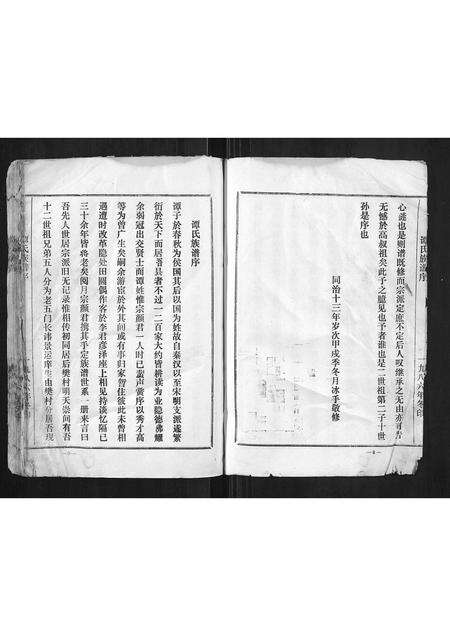 谭氏族谱序
一九八六年冬印
心谜也是则谱既修而宗派定庶不定后人叹继承之无由亦可告
无憾於高叔祖矣此予之臆见也予者谁也是二世祖第二子十世
孙是序也
同治十三年岁次甲戌季冬月冰手敬修
谭氏族谱序
谭子於春秋为侯国其后以国为姓故自秦汉以至宋明支派遂繁
衍於天下而居吾县者不过一二百家大约皆耕读为业隐德弗耀
余弱冠出交贤士而谭姓惟宗颜君一人时已蜚声黉序以秀才高
等为曾广生矣嗣余游宦於外其间或有事归家暂住彼此未曾相
遇遭时改革隐处田园偶作客於李君彦泽座上相见持谈忆隔已
三十余年皆将老矣阅月宗颜君携其手定族谱世系一册来言曰
吾先人世居宗派旧无记录惟相传初同居后樊村明天崇间有吾
十二世祖兄弟五人分为老五门长讳景运庠生由樊村分居吾现